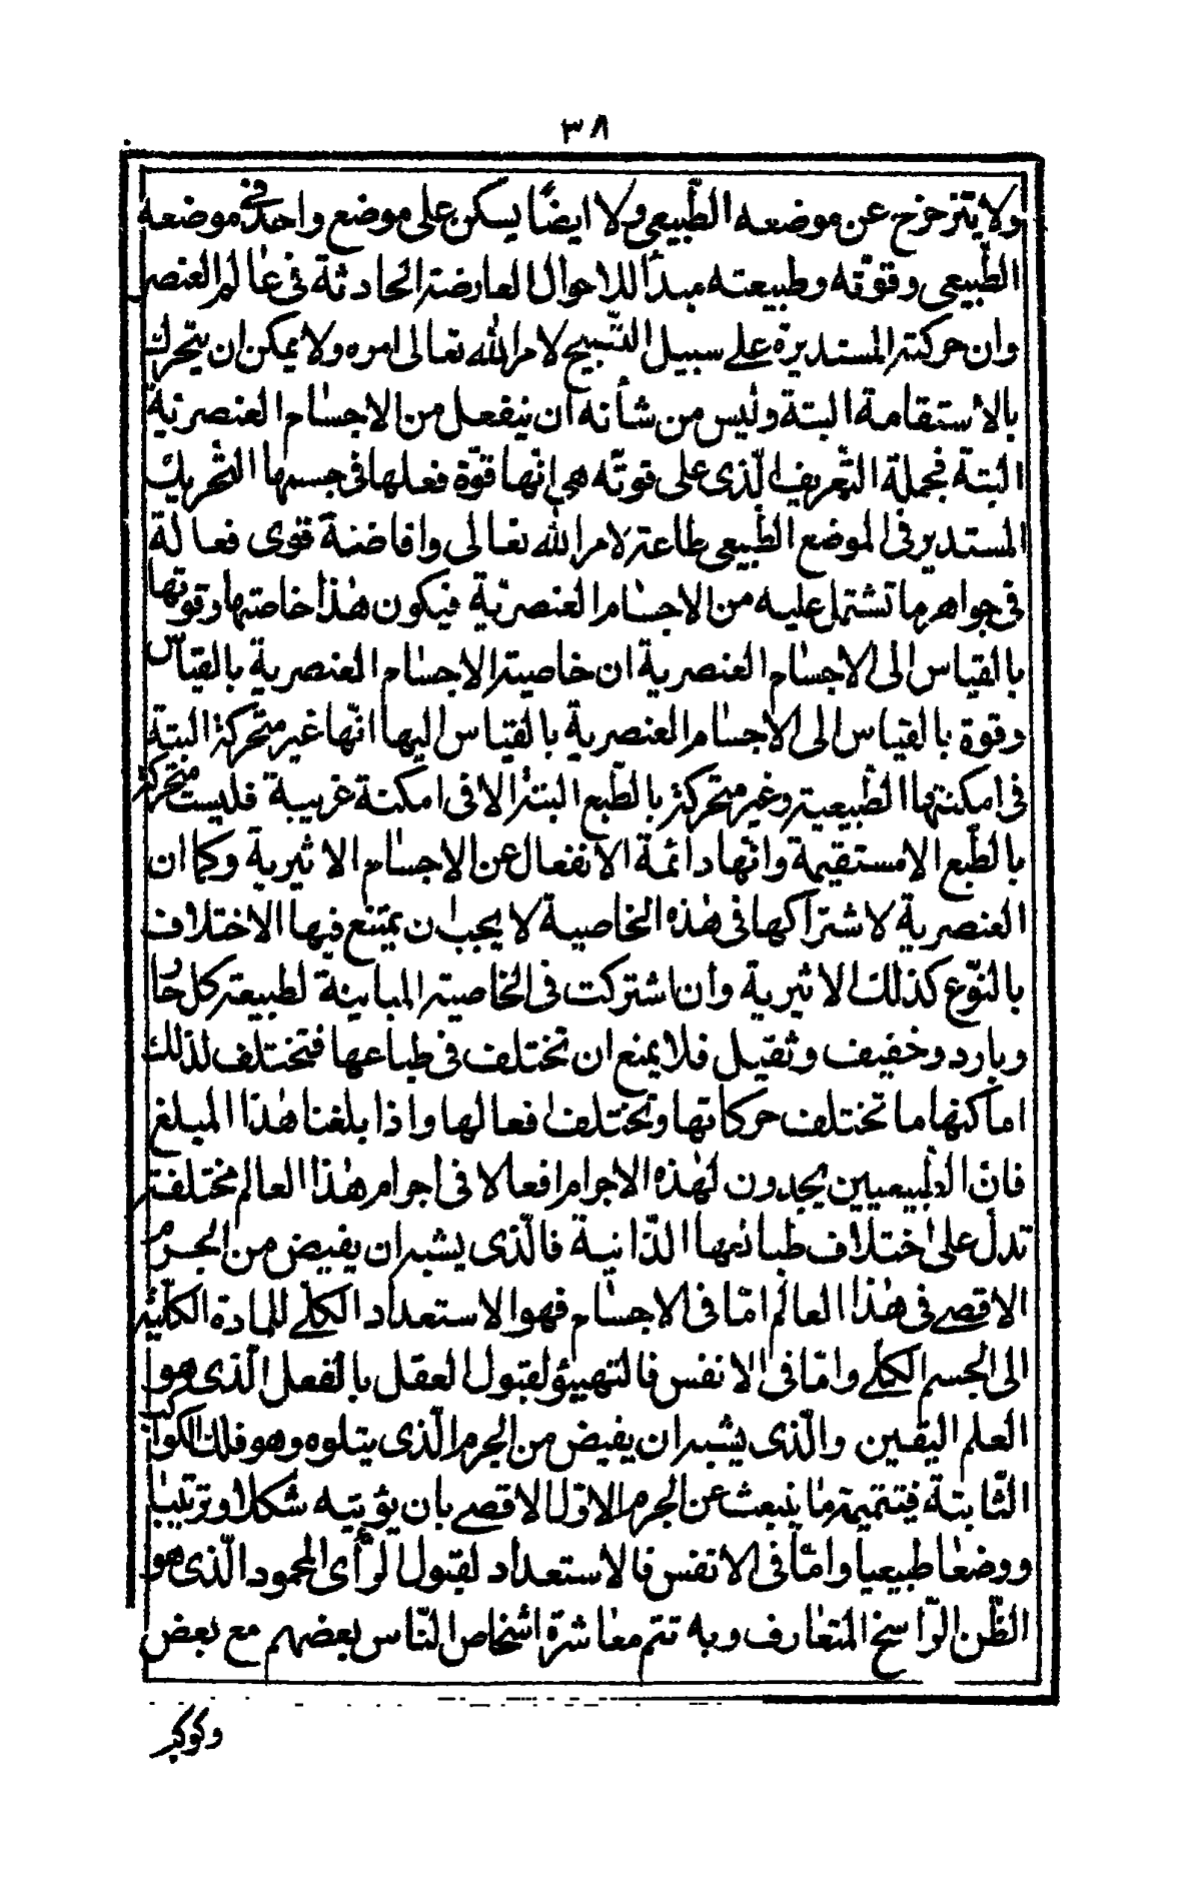 ٣٨
ولا يتزحزح عن موضعه الطّبيعى ولا ايضًا يسكن على موضع واحد فى موضعه
الطّبيعى وقوّته وطبيعته مبدأ للاحوال العارضة الحادثة فى عالم العنصر
وان حركته المستديرة على سبيل التّسبيح لامر الله تعالى امره ولا يمكن ان يتحرك
بالأستقامة البتة وليس من شأنه ان ينفعل من الاجسام العنصريّة
البتة فجملة التّعريف الّذى على قوتّه هى انّها قوّة فعلها فى جسمها التّحريك
المستدير فى الموضع الطّبيعى طاعة لامر الله تعالى وافاضة قوى فعالة
فى جواهر ما تشتمل عليه من الاجسام العنصريّة فيكون هذا خاصتها وقوتها
بالقياس الى الاجسام العنصرية ان خاصية الاجسام العنصرية بالقياس
وقوة بالقياس الى الاجسام العنصرية بالقياس اليها انّها غير متحركة البتة
فى امكنتها الطّبيعية وغير متحركة بالطّبع البتة الا فى امكنة غريبة فليست متحركة
بالطّبع الا مستقيمة وانّها دائمة الانفعال عن الاجسام الاثيرية وكما ان
العنصرية لاشتراكها فى هذه الخاصية لا يجب ان يمتنع فيها الاختلاف
بالنّوع كذلك الاثيرية وان اشتركت فى الخاصية المباينة لطبيعة كل حار
وبارد وخفيف وثقيل فلا يمنع ان تختلف فى طباعها فتختلف لذلك
اماكنها ما تختلف حركاتها وتختلف فعالها واذا بلغنا هذا المبلغ
فان الطّبيعيين يجدون لهذه الاجرام افعالا فى اجرام هذا العالم مختلفة
تدلّ على اختلاف طبائعها الذّاتية فالّذى يشبه ان يفيض من الجرم
الاقصى فى هذا العالم امّا فى الاجسام فهو الاستعداد الكلّى للمادة الكليّة
الى الجسم الكلّى وامّا فى الانفس فالتهيؤ لقبول العقل بالفعل الّذى هو
العلم اليقين والّذى يشبه ان يفيض من الجرم الّذى يتلوه وهو فلك الكواكب
الثّابتة فيتتميم ما ينبعث عن الجرم الاوّل الاقصى بان يؤتيه شكلا وترتيبا
ووضعا طبيعيا وامّا فى الانفس فالاستعداد لقبول الرّأى المحمود الّذى هو
الظّن الرّاسخ المتعارف وبه تتم معاشرة اشخاص النّاس بعضهم مع بعض
وكوكب